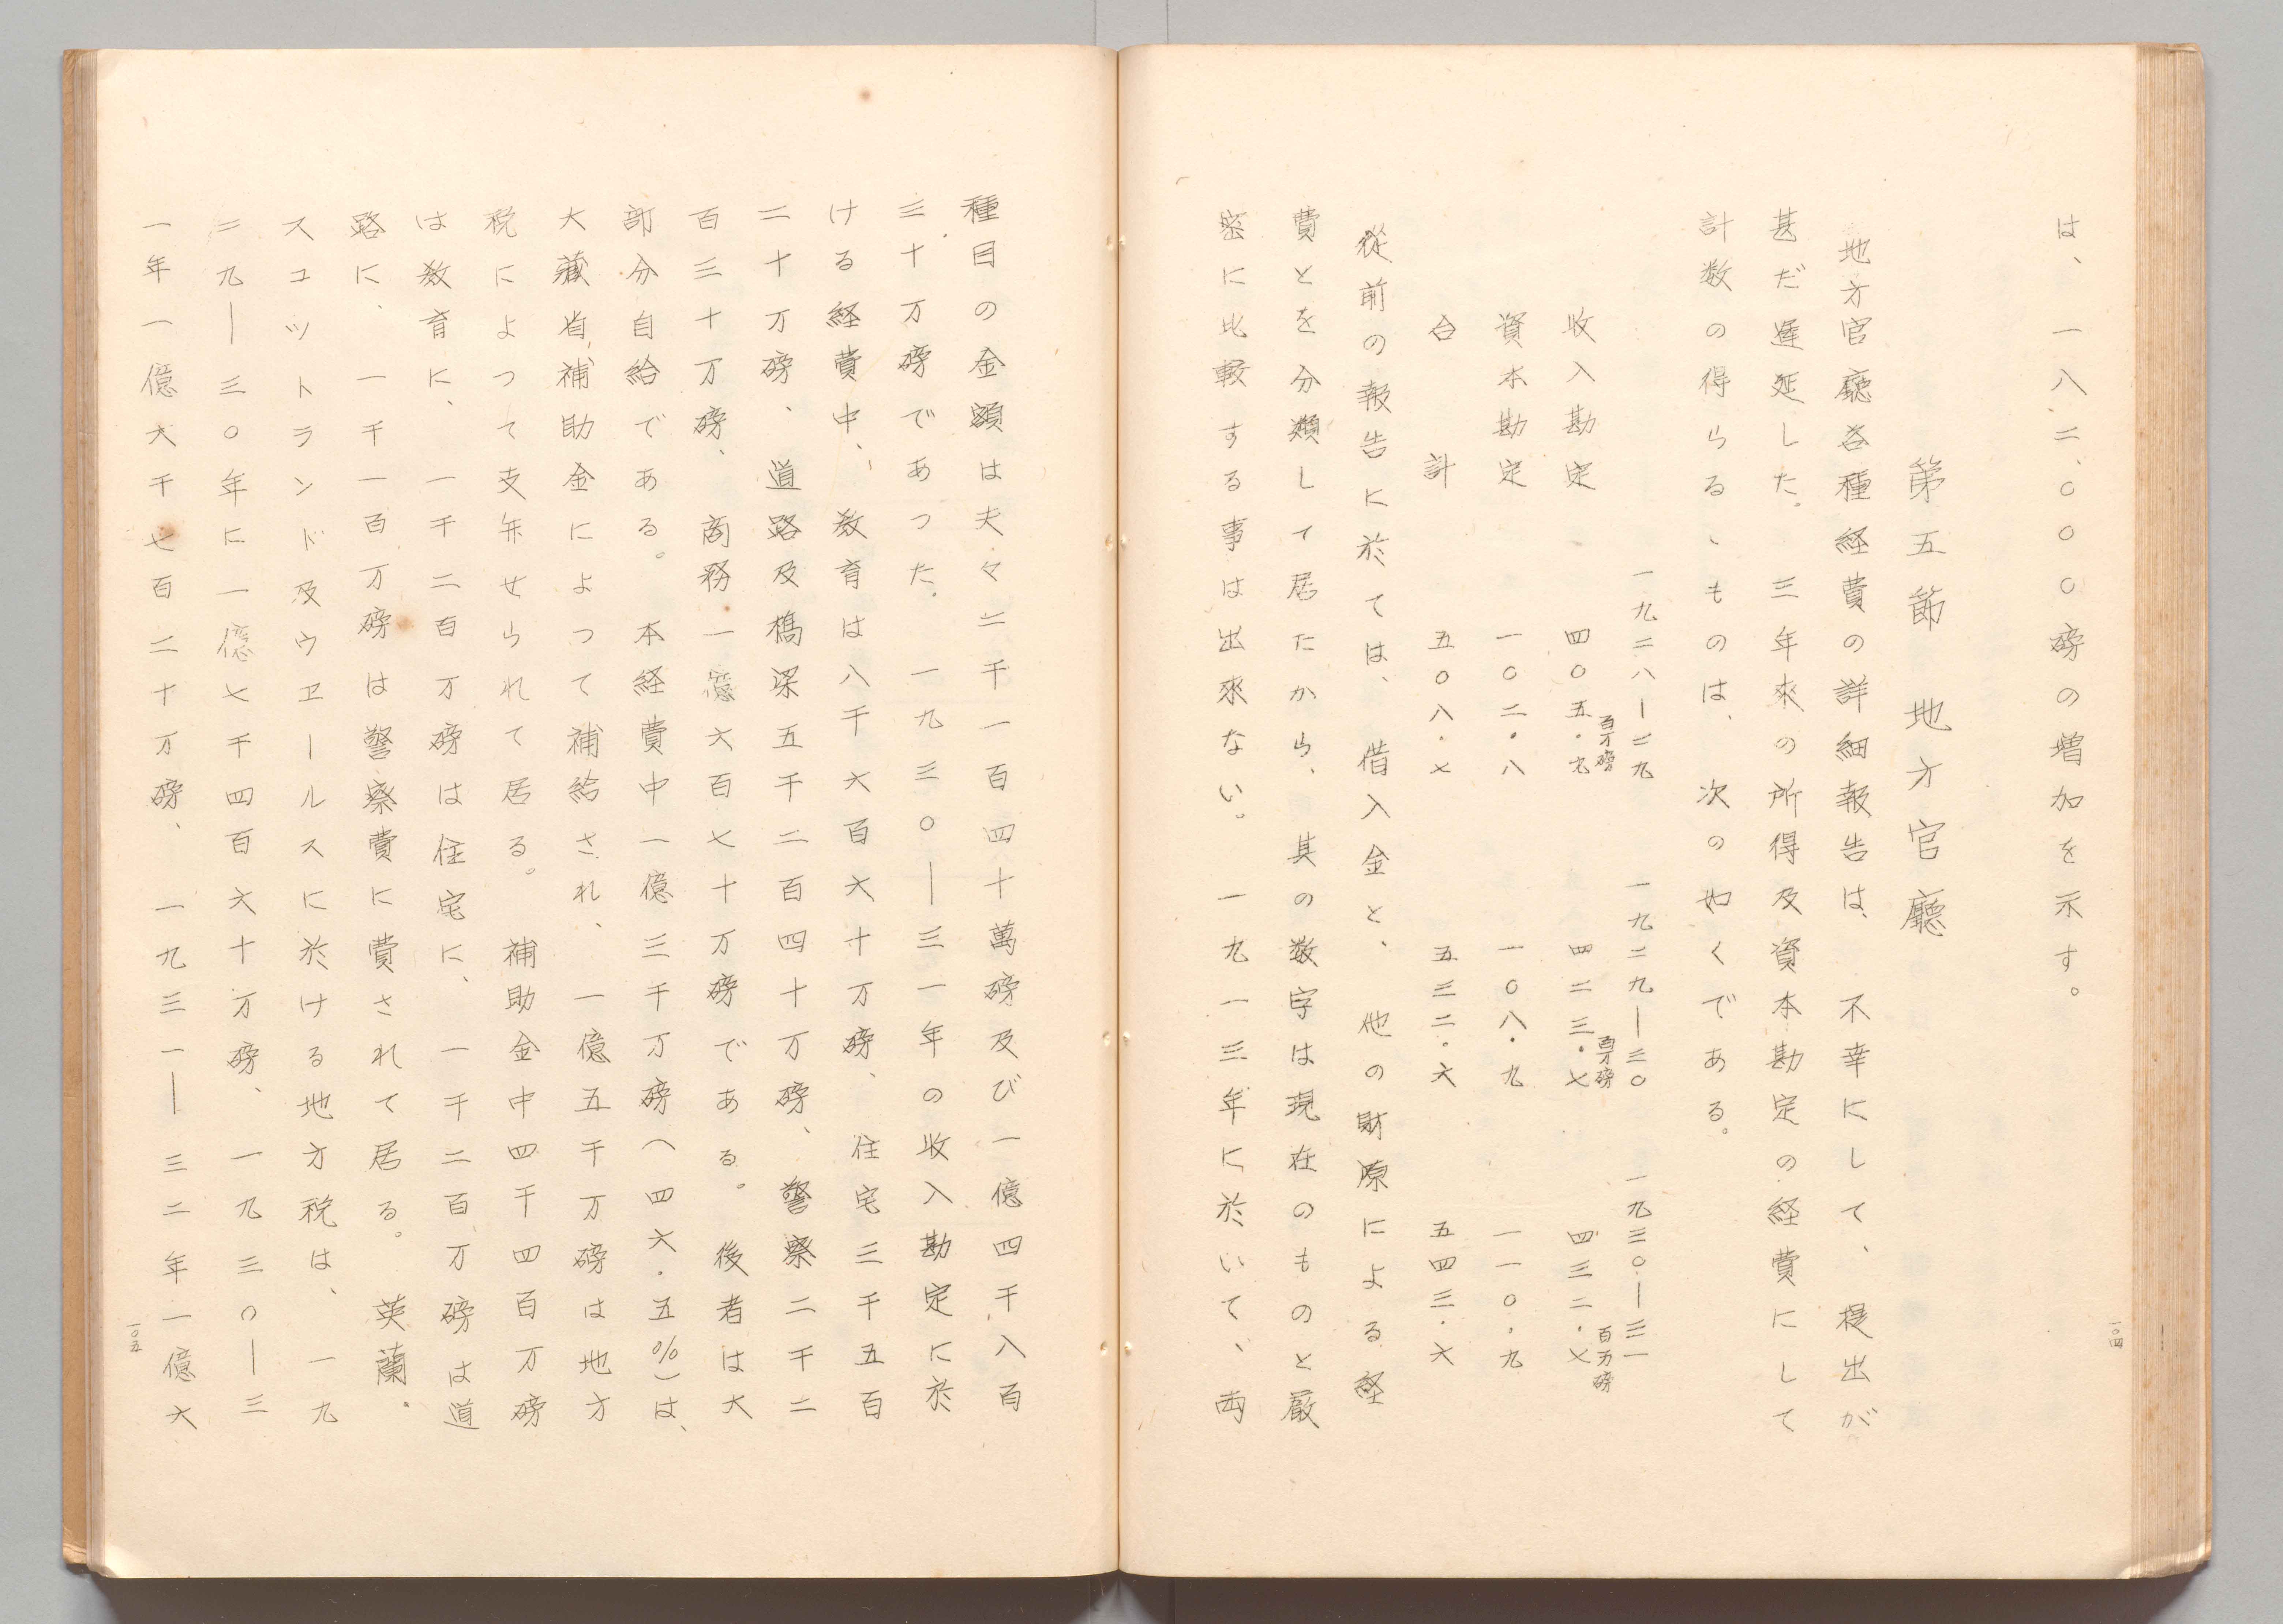 は、一八二、〇〇〇磅の増加を示す。
第五節　地方官廳
地方官廳各種経費の詳細報告は、不幸にして、提出が
甚だ遅延した。三年來の所得及資本勘定の経費にして
計数の得らるゝものは、次の如くである。
一九二八―二九　一九二九―三〇　一九三〇―三一
百万磅　百万磅　百万磅
收入勘定　四〇五・九　四二三・七　四三二・七
資本勘定　一〇二・八　一〇八・九　一一〇・九
合計　五〇八・七　五三二・六　五四三・六
從前の報告に於ては、借入金と、他の財源による経
費とを分類して居たから、其の数字は現在のものと厳
密に比較する事は出來ない。一九一三年に於いて、両
一〇四
種目の金額は夫々二千一百四十萬磅及び一億四千八百
三十万磅であつた。一九三〇―三一年の收入勘定に於
ける経費中、教育は八千六百六十万磅、住宅三千五百
二十万磅、道路及橋梁五千二百四十万磅、警察二千二
百三十万磅、商務一億六百七十万磅である。後者は大
部分自給である。本経費中一億三千万磅（四六・五％）は、
大藏省補助金によつて補給され、一億五千万磅は地方
税によつて支弁せられて居る。補助金中四千四百万磅
は教育に、一千二百万磅は住宅に、一千二百万磅は道
路に、一千一百万磅は警察費に費されて居る。英蘭・
スコツトランド及ウエールスに於ける地方税は、一九
二九―三〇年に一億七千四百六十万磅、一九三〇―三
一年一億六千七百二十万磅、一九三一―三二年一億六
一〇五